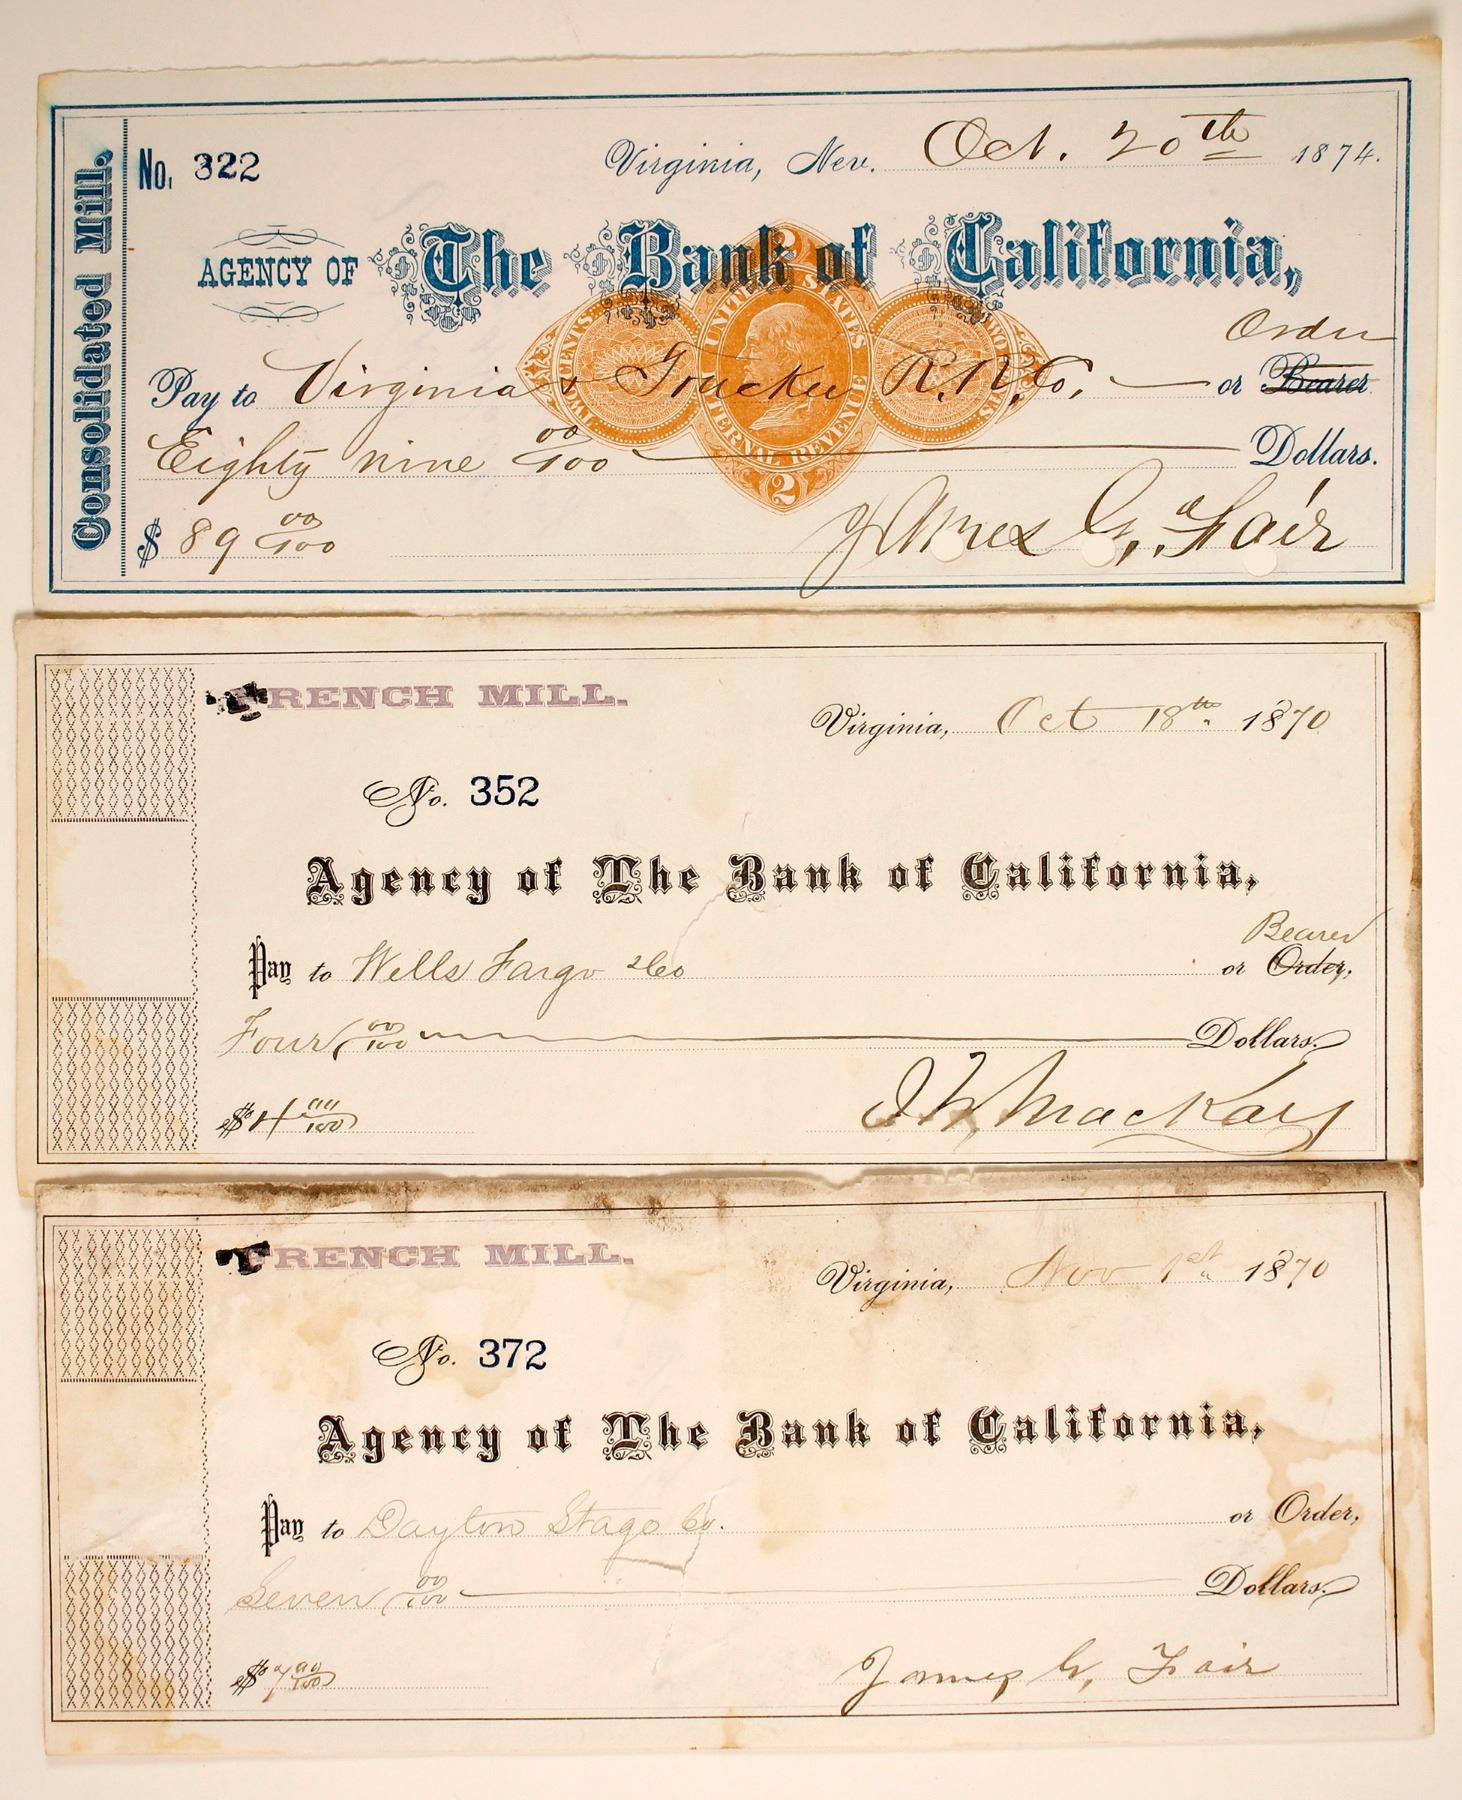 Consolidated Mill.
No. 322
Virginia, Nev. Oct. 20th 1874.
AGENCY OF The Bank of California,
UNITED STATES INTERNAL REVENUE
TWO CENTS.
TWO CENTS.
2
2
Order
Pay to Virginia & Truckee R.R. Co. or Bearer
Eighty nine 00/100 Dollars.
$ 89 00/100
James G. Fair
FRENCH MILL.
Virginia, Oct 18th 1870
No. 352
Agency of The Bank of California,
Bearer
Pay to Wells Fargo & Co or Order,
Four 00/100 Dollars.
$ 4 00/100
J W Mackay
FRENCH MILL.
Virginia, Nov 1st 1870
No. 372
Agency of The Bank of California,
Pay to Dayton Stage Co. or Order,
Seven 00/100 Dollars.
$ 7 00/100
James G. Fair